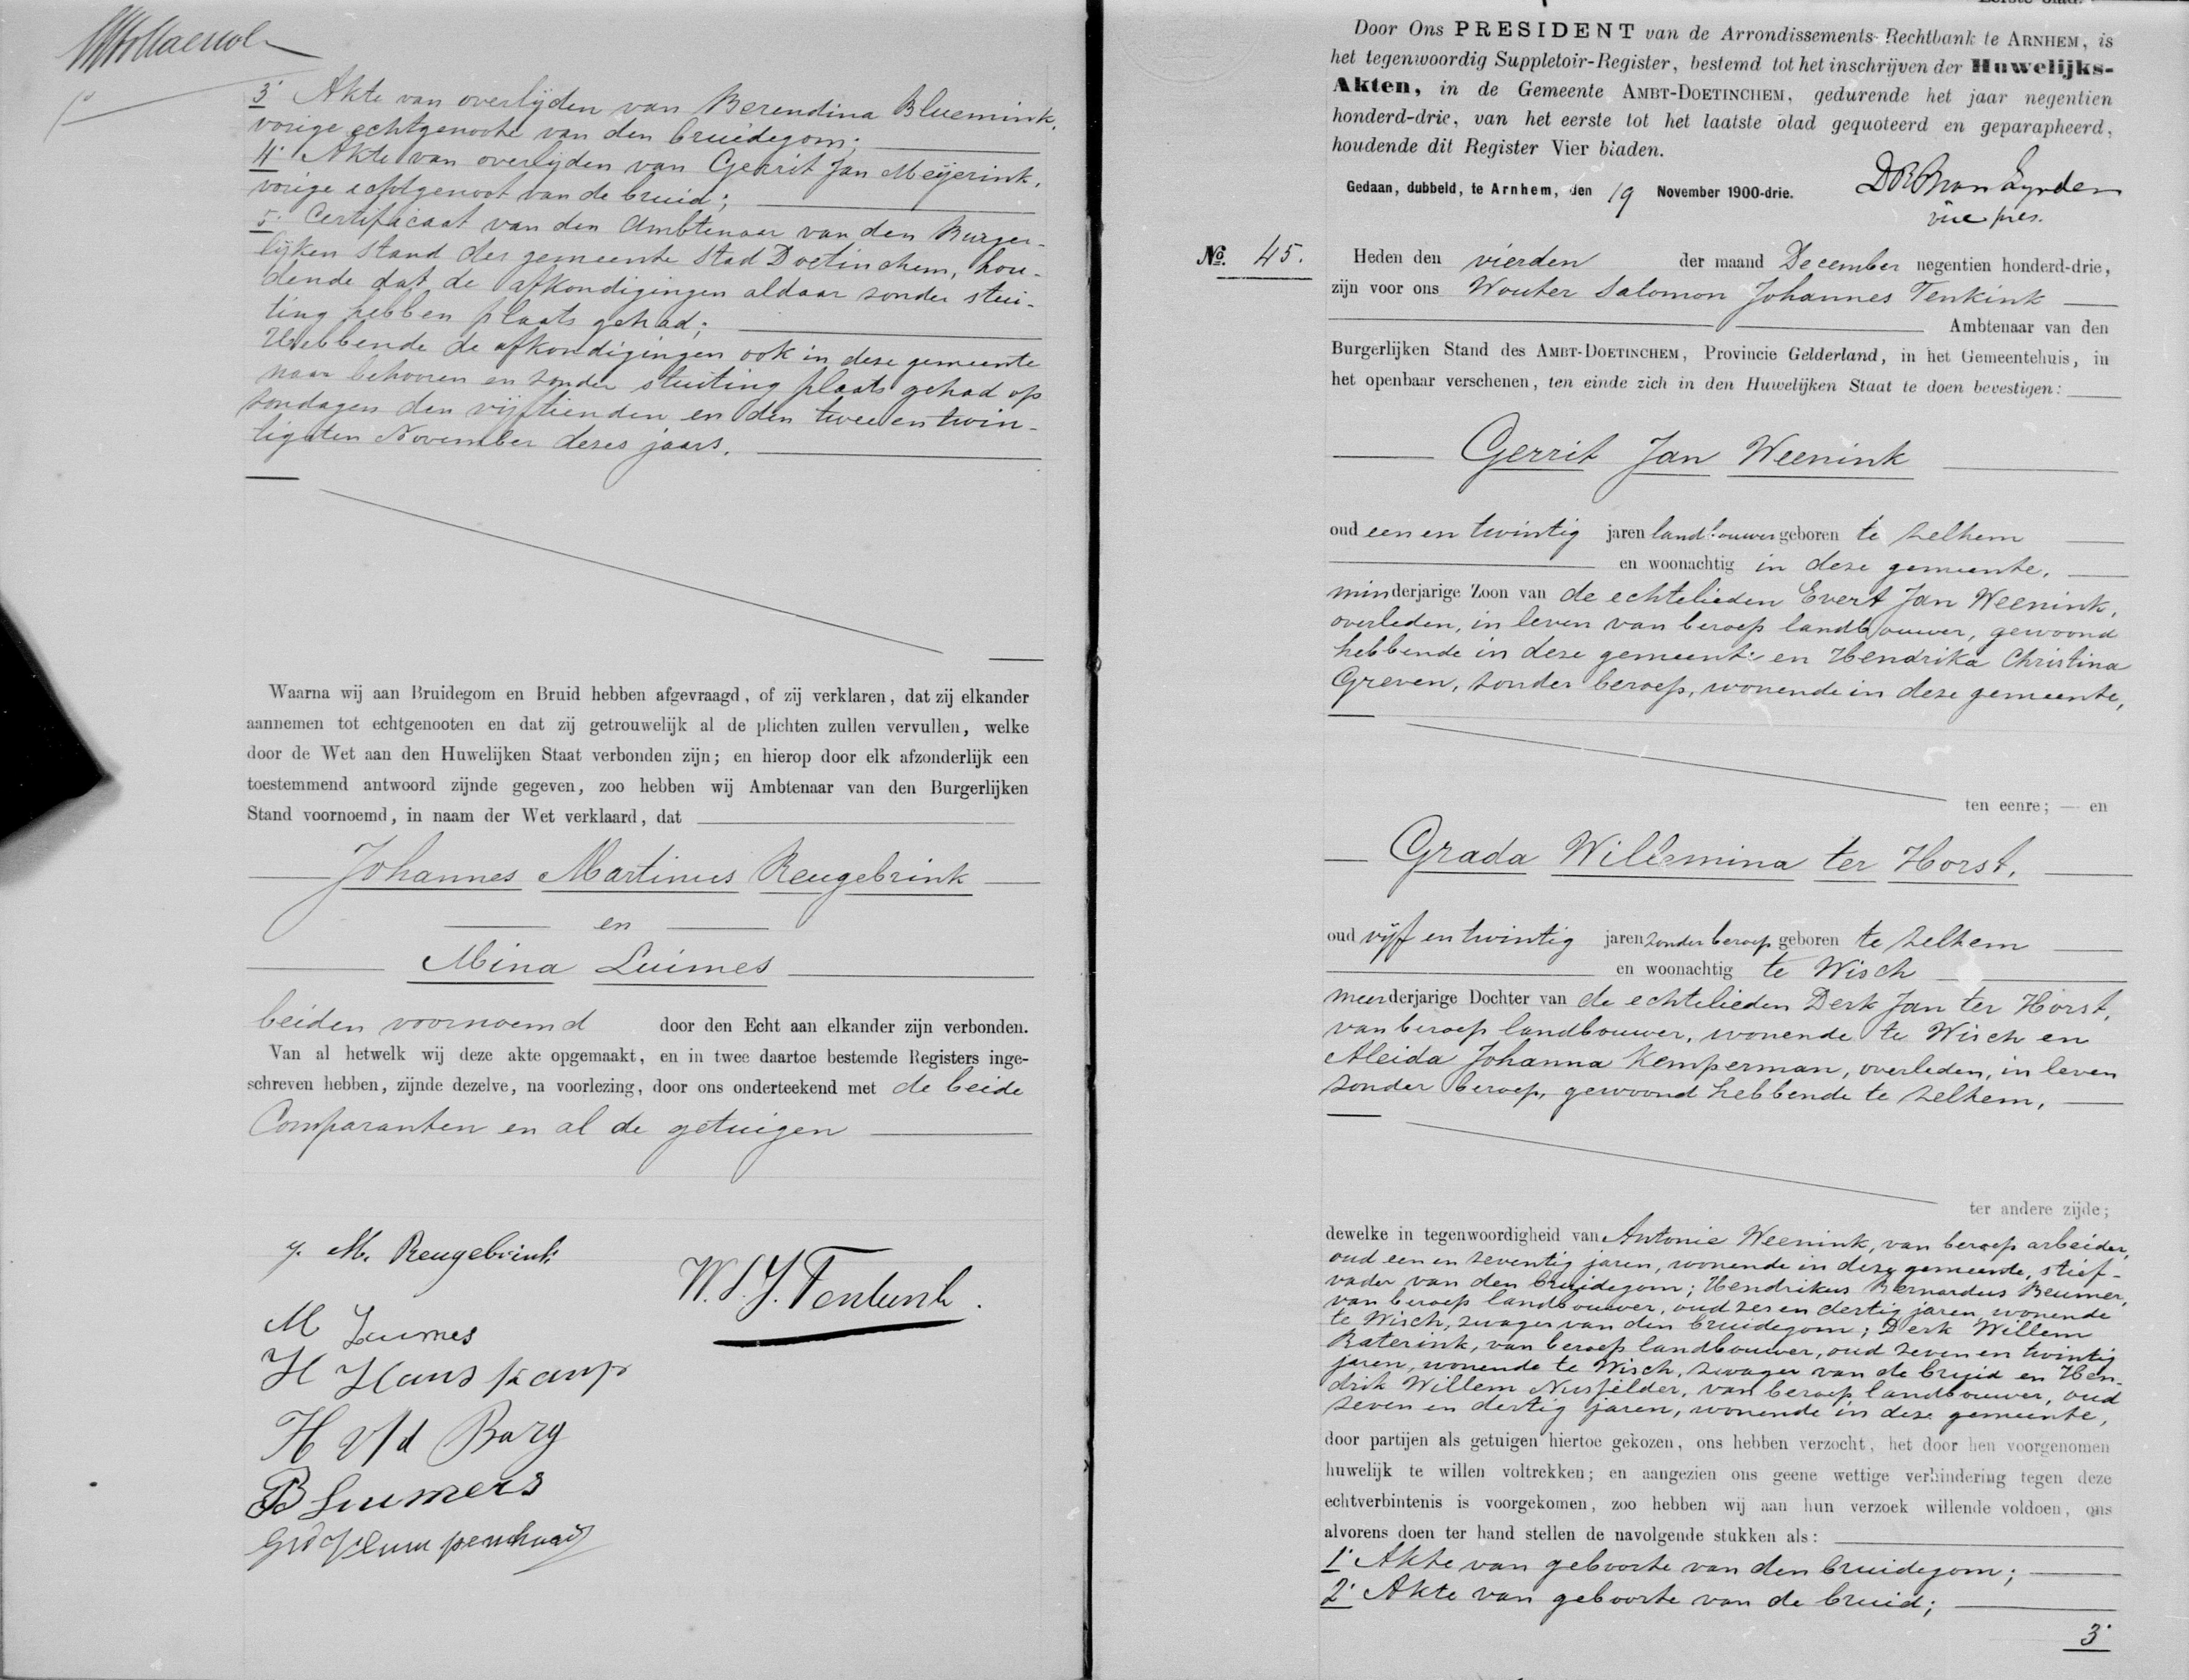 3° Akte van overlijden van Berendina Bluemink,
vorige echtgenoote van den bruidegom;
4° Akte van overlijden van Gerrit Jan Meijerink,
vorige echtgenoot van de bruid;
5° Certificaat van den Ambtenaar van den Burger-
lijken Stand der gemeente Stad Doetinchem, hou-
dende dat de afkondigingen aldaar zonder stui-
ting hebben plaats gehad;
Hebbende de afkondigingen ook in deze gemeente
naar behooren en zonder stuiting plaats gehad op
zondagen den vijftienden en den twee en twin-
tigsten November dezes jaars.
Waarna wij aan Bruidegom en Bruid hebben afgevraagd, of zij verklaren, dat zij elkander
aannemen tot echtgenooten en dat zij getrouwelijk al de plichten zullen vervullen, welke
door de Wet aan den Huwelijken Staat verbonden zijn; en hierop door elk afzonderlijk een
toestemmend antwoord zijnde gegeven, zoo hebben wij Ambtenaar van den Burgerlijken
Stand voornoemd, in naam der Wet verklaard, dat
Johannes Martinus Reugebrink
en
Mina Luimes
beiden voornoemd door den Echt aan elkander zijn verbonden.
Van al hetwelk wij deze akte opgemaakt, en in twee daartoe bestemde Registers inge-
schreven hebben, zijnde dezelve, na voorlezing, door ons onderteekend met de beide
Comparanten en al de getuigen
J. M. Reugebrink
W. S. J. Tenkink.
M Luimes
H Hanskamp
H v/d Barg
B Luimers
Eerste blad.
Door Ons PRESIDENT van de Arrondissements-Rechtbank te ARNHEM, is
het tegenwoordig Suppletoir-Register, bestemd tot het inschrijven der Huwelijks-
Akten, in de Gemeente AMBT-DOETINCHEM, gedurende het jaar negentien
honderd-drie, van het eerste tot het laatste blad gequoteerd en geparapheerd,
houdende dit Register Vier bladen.
Gedaan, dubbeld, te Arnhem, den 19 November 1900-drie.
vice pres.
No. 45. Heden den vierden der maand December negentien honderd-drie,
zijn voor ons Wouter Salomon Johannes Tenkink
Ambtenaar van den
Burgerlijken Stand des AMBT-DOETINCHEM, Provincie Gelderland, in het Gemeentehuis, in
het openbaar verschenen, ten einde zich in den Huwelijken Staat te doen bevestigen:
Gerrit Jan Weenink
oud een en twintig jaren landbouwer geboren te Zelhem
en woonachtig in deze gemeente,
minderjarige Zoon van de echtelieden Evert Jan Weenink,
overleden, in leven van beroep landbouwer, gewoond
hebbende in deze gemeente en Hendrika Christina
Greven, zonder beroep, wonende in deze gemeente,
ten eenre; — en
Grada Willemina ter Horst,
oud vijf en twintig jaren zonder beroep geboren te Zelhem
en woonachtig te Wisch
meerderjarige Dochter van de echtelieden Derk Jan ter Horst,
van beroep landbouwer, wonende te Wisch en
Aleida Johanna Kemperman, overleden, in leven
zonder beroep, gewoond hebbende te Zelhem,
ter andere zijde;
dewelke in tegenwoordigheid van Antonie Weenink, van beroep arbeider,
oud een en zeventig jaren, wonende in deze gemeente, stief-
vader van den bruidegom; Hendrikus Bernardus Beumer,
van beroep landbouwer, oud zes en dertig jaren, wonende
te Wisch, zwager van den bruidegom; Derk Willem
Raterink, van beroep landbouwer, oud zeven en twintig
jaren, wonende te Wisch, zwager van de bruid en Hen-
drik Willem Nusselder, van beroep landbouwer, oud
zeven en dertig jaren, wonende in deze gemeente,
door partijen als getuigen hiertoe gekozen, ons hebben verzocht, het door hen voorgenomen
huwelijk te willen voltrekken; en aangezien ons geene wettige verhindering tegen deze
echtverbintenis is voorgekomen, zoo hebben wij aan hun verzoek willende voldoen, ons
alvorens doen ter hand stellen de navolgende stukken als:
1° Akte van geboorte van den bruidegom;
2° Akte van geboorte van de bruid;
3°